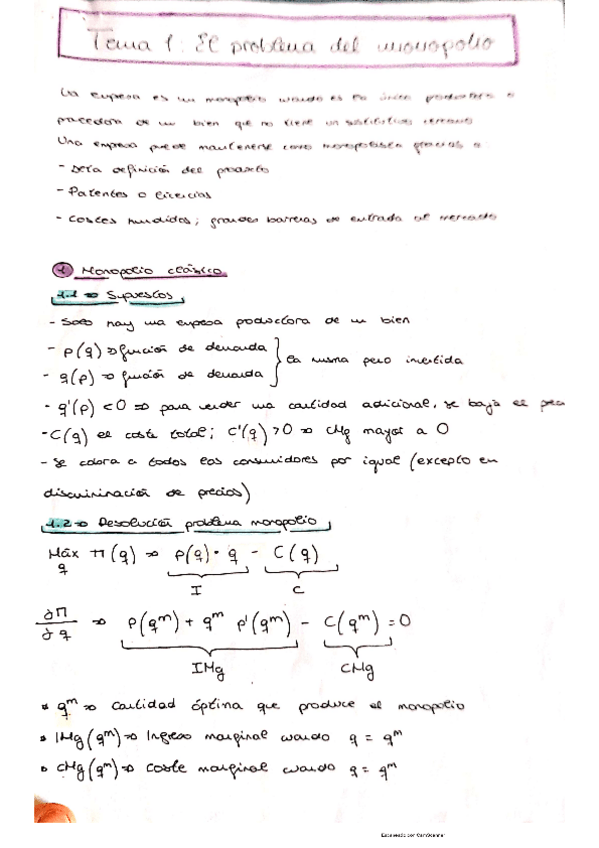 Tema 1: El problema del monopolio
La empresa es un monopolio cuando es la única productora o
proveedora de un bien que no tiene un sustitutivo cercano
Una empresa puede mantenerse como monopolista gracias a
- definición del producto
- Patentes o licencias
- Costes hundidos; grandes barreras de entrada al mercado
1 Monopolio clásico
1.1 ⇒ Supuestos
- Solo hay una empresa productora de un bien
- p(q) ⇒ función de demanda
- q(p) ⇒ función de demanda } la misma pero invertida
- q'(p) < 0 ⇒ para vender una cantidad adicional, se baja el
- C(q) el coste total; C'(q) > 0 ⇒ CMg mayor a 0
- Se cobra a todos los consumidores por igual (excepto en
discriminación de precios)
1.2 ⇒ Resolución problema monopolio
Máx π(q) ⇒ p(q) · q - C(q)
q
I C
∂Π/∂q ⇒ p(qᵐ) + qᵐ p'(qᵐ) - C(qᵐ) = 0
IMg CMg
* qᵐ ⇒ cantidad óptima que produce el monopolio
* IMg(qᵐ) ⇒ Ingreso marginal cuando q = qᵐ
* CMg(qᵐ) ⇒ coste marginal cuando q = qᵐ
Escaneado por CamScanner